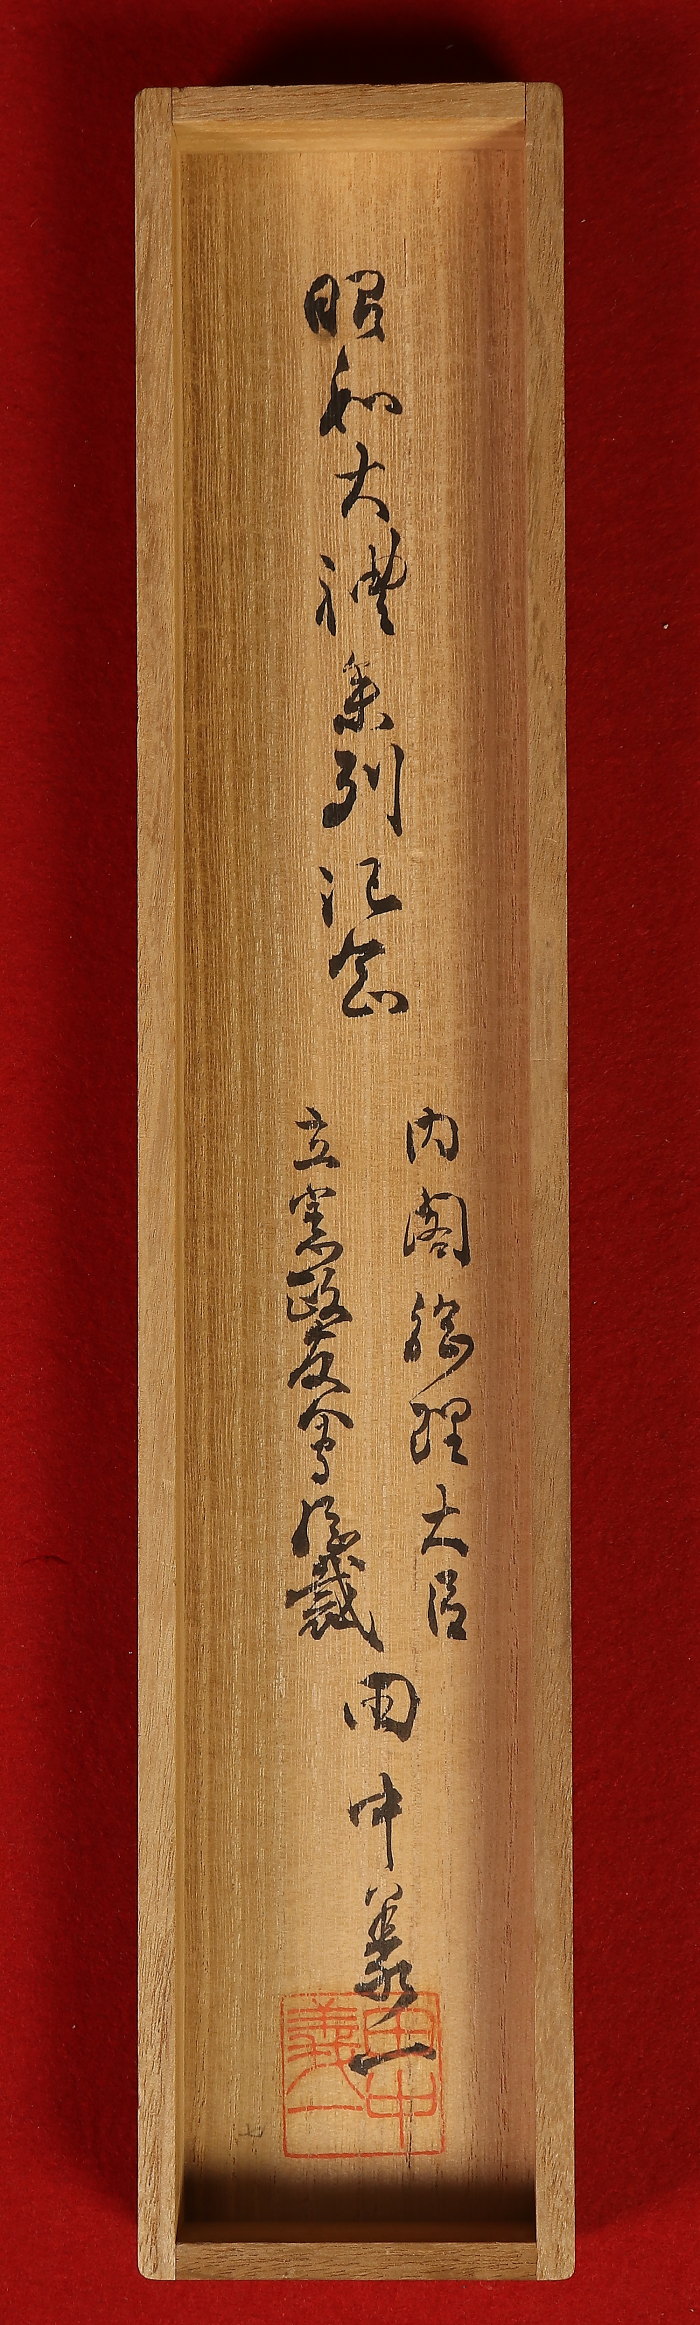 昭和大禮参列記念
内閣総理大臣
立憲政友會総裁
田中義一
田中義一